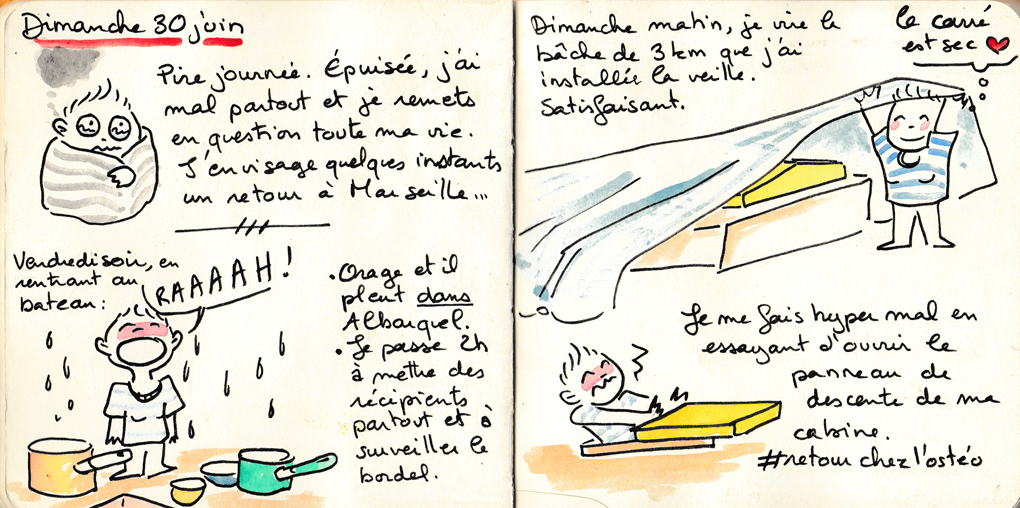 Dimanche 30 juin
Pire journée. Épuisée, j'ai
mal partout et je remets
en question toute ma vie.
J'envisage quelques instants
un retour à Marseille...
Vendredi soir, en
rentrant au
bateau :
RAAAAH !
• Orage et il
pleut dans
Albarquel.
• Je passe 2h
à mettre des
récipients
partout et à
surveiller le
bordel.
Dimanche matin, je vire la
bâche de 3 km que j'ai
installée la veille.
Satisfaisant.
le carré
est sec ♥
Je me fais hyper mal en
essayant d'ouvrir le
panneau de
descente de ma
cabine.
#retour chez l'ostéo